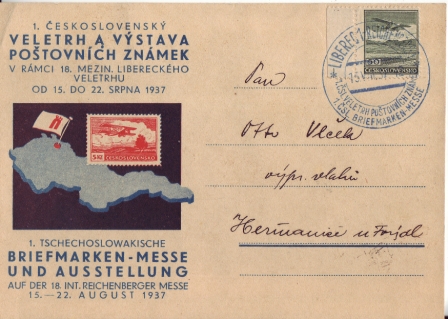 1. ČESKOSLOVENSKÝ
VELETRH A VÝSTAVA
POŠTOVNÍCH ZNÁMEK
V RÁMCI 18. MEZIN. LIBERECKÉHO
VELETRHU
OD 15. DO 22. SRPNA 1937
5 Kč
ČESKOSLOVENSKO
1. TSCHECHOSLOWAKISCHE
BRIEFMARKEN-MESSE
UND AUSSTELLUNG
AUF DER 18. INT. REICHENBERGER MESSE
15.—22. AUGUST 1937
50
ČESKOSLOVENSKO
LIBEREC 1
1. ČSL. VELETRH POŠTOVNÍCH ZNÁM.
1. ČSL. BRIEFMARKEN-MESSE
Pan
Otto Vlček
výpr. vlaků
Heřmanice u Frýdl